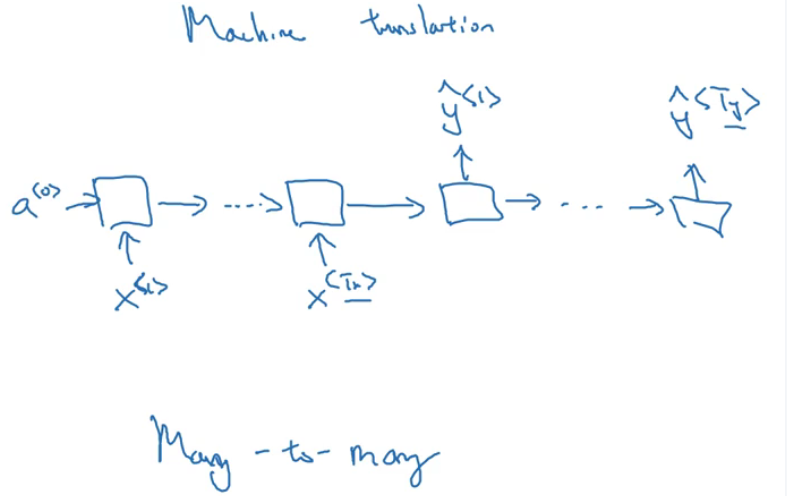 Machine translation
ŷ<1> ŷ<Ty>
a<0>
x<1> x<Tx>
Many-to-many